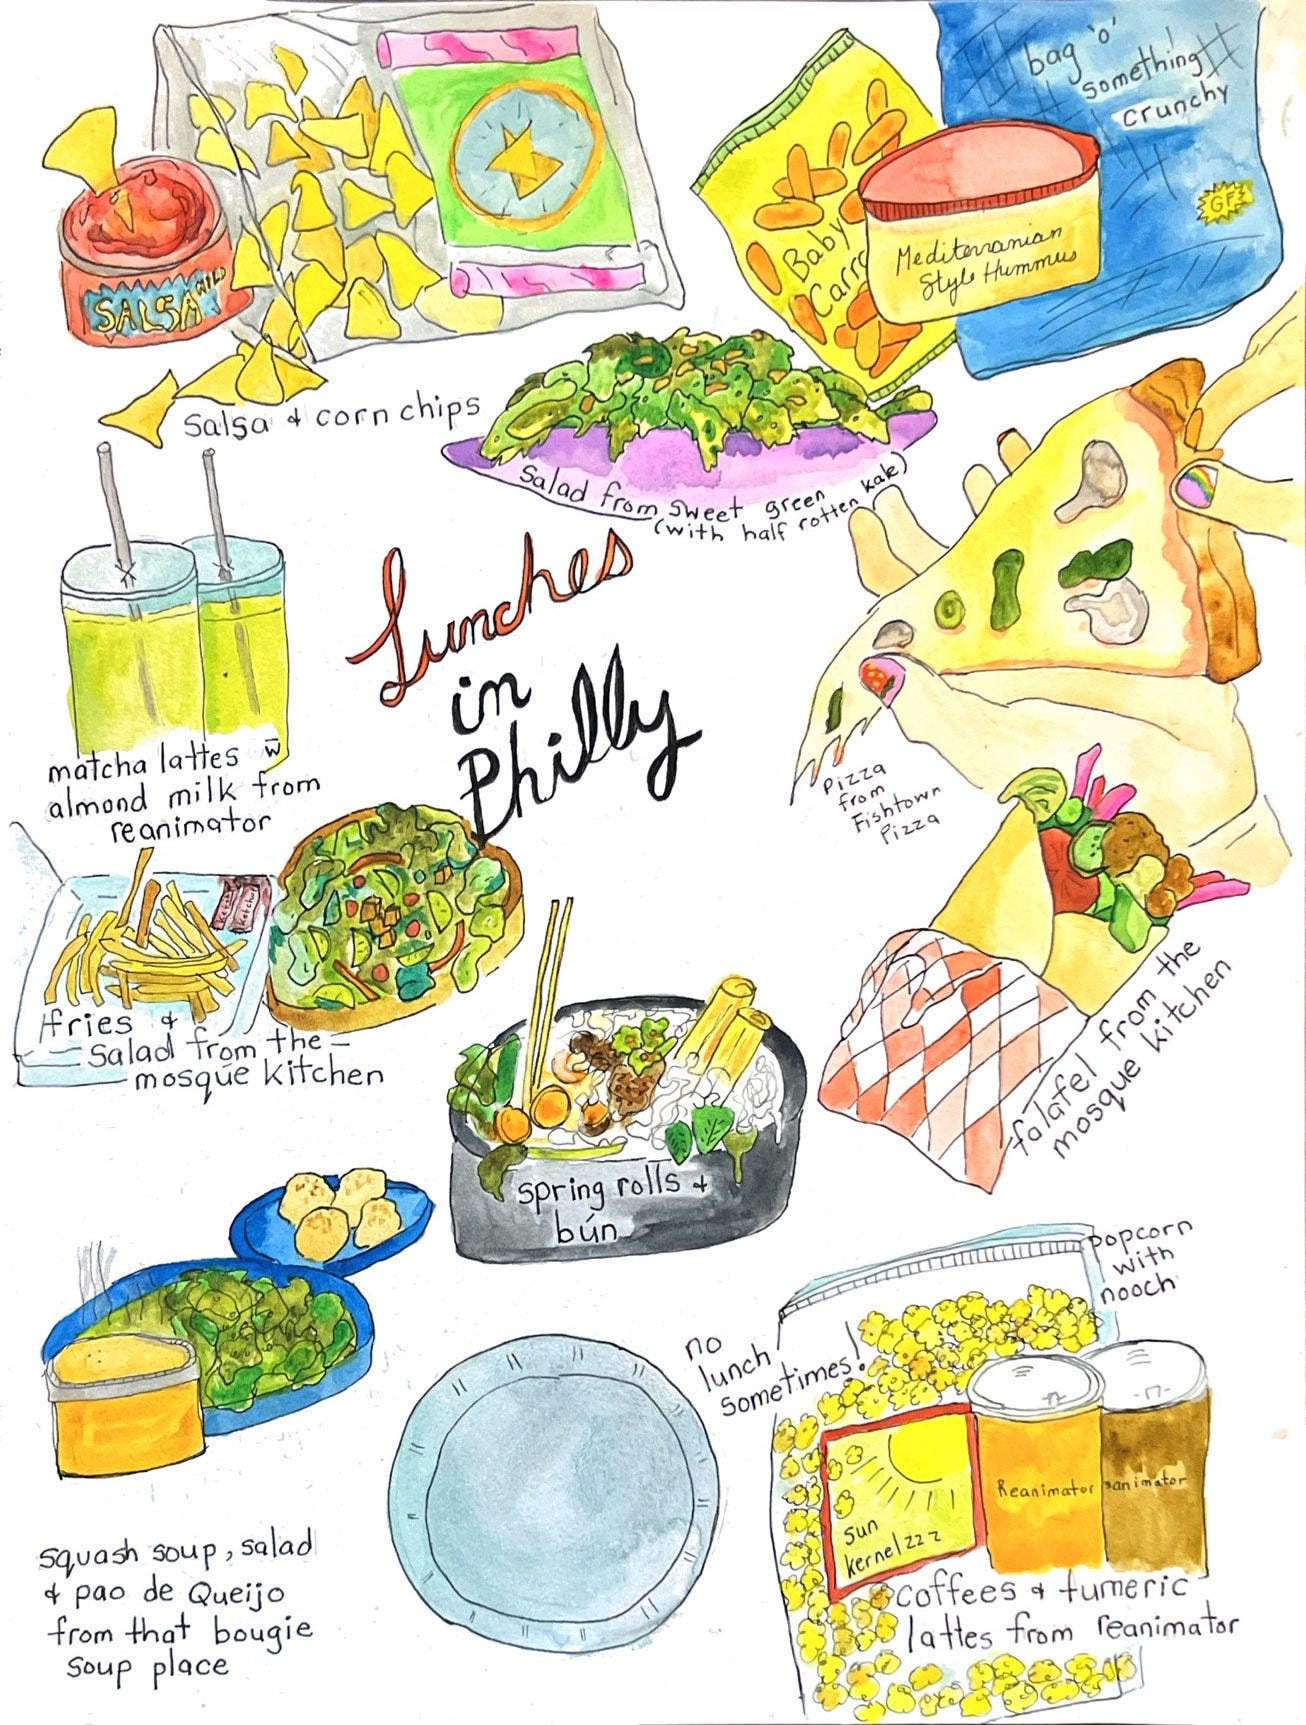 bag 'o'
something
crunchy
GF
Baby
Carro
Mediterranian
Style Hummus
SALSA
MILD
Salsa & corn chips
Salad from sweet green
(with half rotten kale)
Lunches
in
Philly
matcha lattes w̄
almond milk from
reanimator
Pizza
from
Fishtown
Pizza
Ketchup
fries &
Salad from the
mosque kitchen
falafel from the
mosque kitchen
spring rolls &
bún
popcorn
with
nooch
no
lunch
sometimes!
Sun
kernelzzz
Reanimator
eanimator
coffees & tumeric
lattes from reanimator
squash soup, salad
& pao de Queijo
from that bougie
soup place